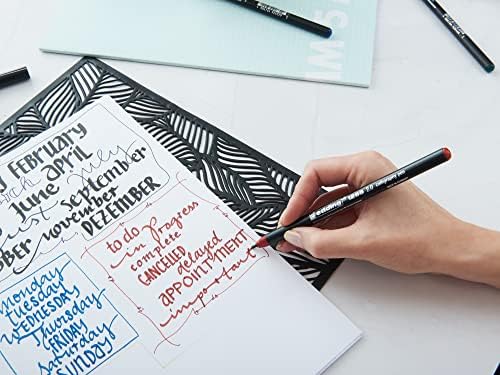 FEBRUARY
april
June
July
september
november
DEZEMBER
to do
in Progress
complete
CANCELLED
delayed
APPOINTMENT
important
monday
TUESDAY
WEDNESDAY
Thursday
FRIDAY
Saturday
SUNDAY
edding 1255 2.0 calligraphy pen